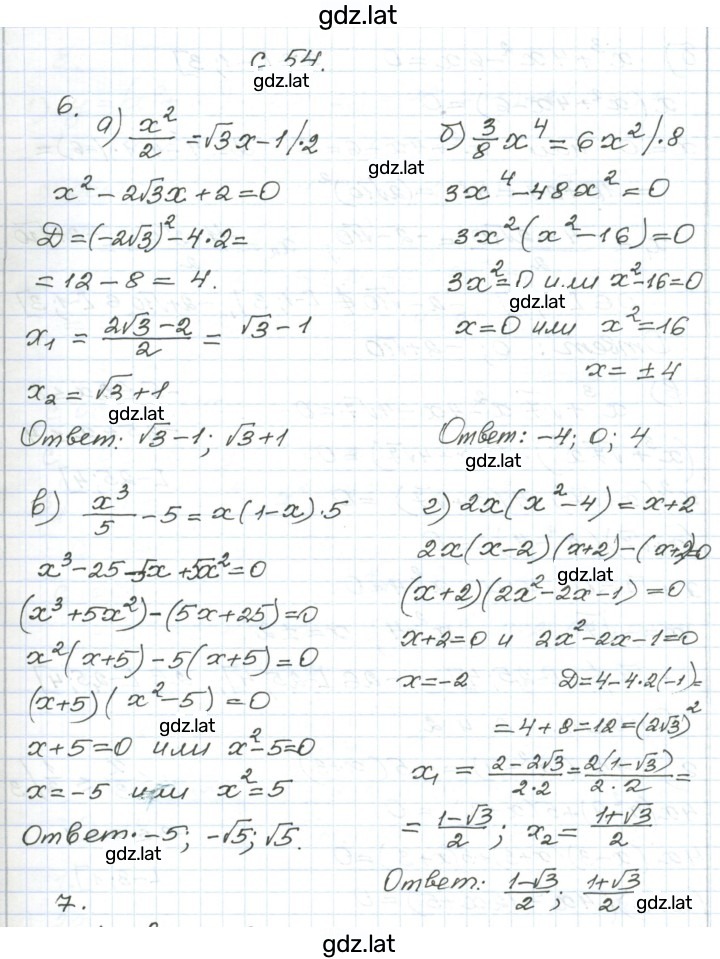 gdz.lat
с. 54.
gdz.lat
6.
а) x²/2 = √3x − 1 /·2
x² − 2√3x + 2 = 0
Д = (−2√3)² − 4·2 =
= 12 − 8 = 4.
x₁ = (2√3 − 2)/2 = √3 − 1
x₂ = √3 + 1
gdz.lat
Ответ: √3 − 1; √3 + 1
б) 3/8 x⁴ = 6x² /·8
gdz.lat
3x⁴ − 48x² = 0
3x²(x² − 16) = 0
3x² = 0 или x² − 16 = 0
gdz.lat
x = 0 или x² = 16
x = ± 4
Ответ: −4; 0; 4
gdz.lat
в) x³/5 − 5 = x(1 − x)·5
x³ − 25 − 5x + 5x² = 0
(x³ + 5x²) − (5x + 25) = 0
x²(x + 5) − 5(x + 5) = 0
(x + 5)(x² − 5) = 0
gdz.lat
x + 5 = 0 или x² − 5 = 0
x = −5 или x² = 5
Ответ: −5; −√5; √5.
gdz.lat
г) 2x(x² − 4) = x + 2
2x(x − 2)(x + 2) − (x + 2) = 0
gdz.lat
(x + 2)(2x² − 2x − 1) = 0
x + 2 = 0 и 2x² − 2x − 1 = 0
x = −2 Д = 4 − 4·2(−1) =
= 4 + 8 = 12 = (2√3)²
x₁ = (2 − 2√3)/(2·2) = 2(1 − √3)/(2·2) =
= (1 − √3)/2; x₂ = (1 + √3)/2
Ответ: (1 − √3)/2; (1 + √3)/2
gdz.lat
7.
gdz.lat